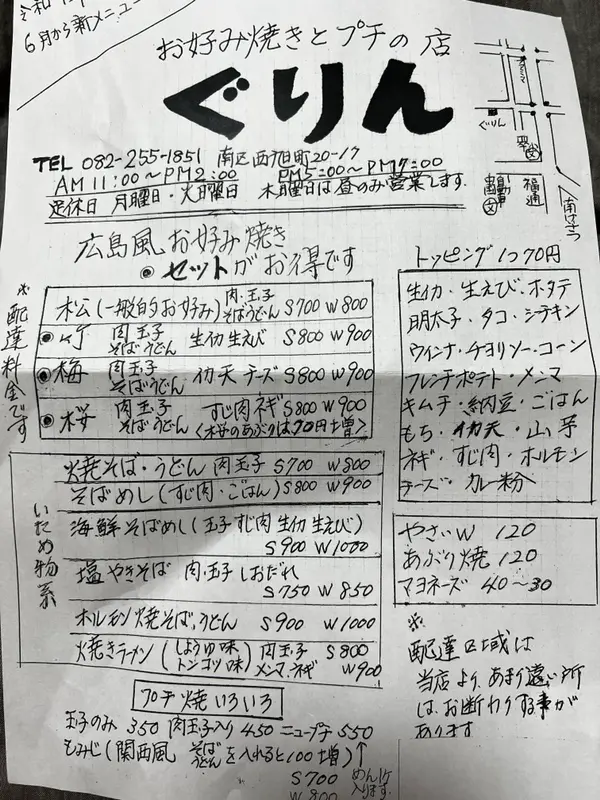 6月から新メニュー
お好み焼きとプチの店
ぐりん
TEL 082-255-1851 南区西旭町20-17
AM11:00〜PM2:00 PM5:00〜PM7:00
定休日 月曜日・火曜日 木曜日は昼のみ営業します.
ぐりん
福通
広島風お好み焼き
◉セットがお得です
※配達料金です
松(一般的お好み) 肉・玉子 そばうどん S700 W800
◉竹 肉玉子 そばうどん 生イカ 生えび S800 W900
◉梅 肉玉子 そばうどん イカ天 チーズ S800 W900
◉桜 肉玉子 そばうどん すじ肉ネギ S800 W900
<桜のあぶりは70円増>
いため物系
焼そば・うどん 肉玉子 S700 W800
そばめし(すじ肉・ごはん) S800 W900
海鮮そばめし(玉子すじ肉生イカ生えび)
S900 W1000
塩やきそば 肉・玉子 しおだれ
S750 W850
ホルモン焼そば,うどん S900 W1000
焼きラーメン(しょうゆ味 トンコツ味) 肉玉子 メンマ,ネギ S800 W900
プチ焼いろいろ
玉子のみ 350 肉玉子入り 450 ニュープチ 550
もみじ(関西風 そばうどんを入れると100増)↑
S700
W800
めん1ケ入ります.
トッピング1つ70円
生イカ・生えび・ホタテ
明太子・タコ・シーチキン
ウィンナ・チョリソー・コーン
フレンチポテト・メンマ
キムチ・納豆・ごはん
もち・イカ天・山芋
ネギ・すじ肉・ホルモン
チーズ・カレー粉
やさいW 120
あぶり焼 120
マヨネーズ 40〜30
※
配達区域は
当店より、あまり遠い所
は、お断わりする事が
あります